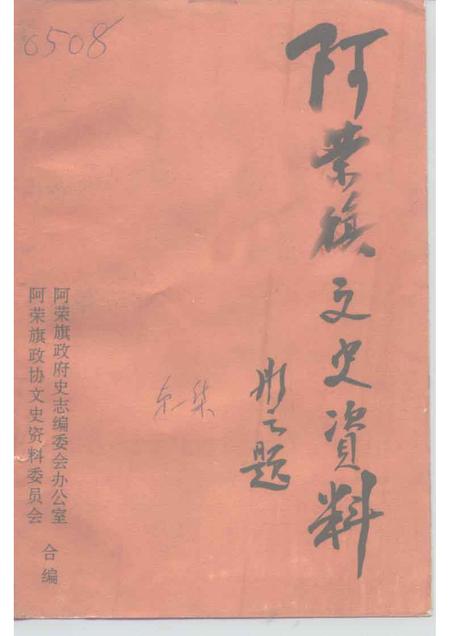 6508
阿荣旗文史資料
题
第一集
阿荣旗政府史志编委会办公室
阿荣旗政协文史资料委员会
合编